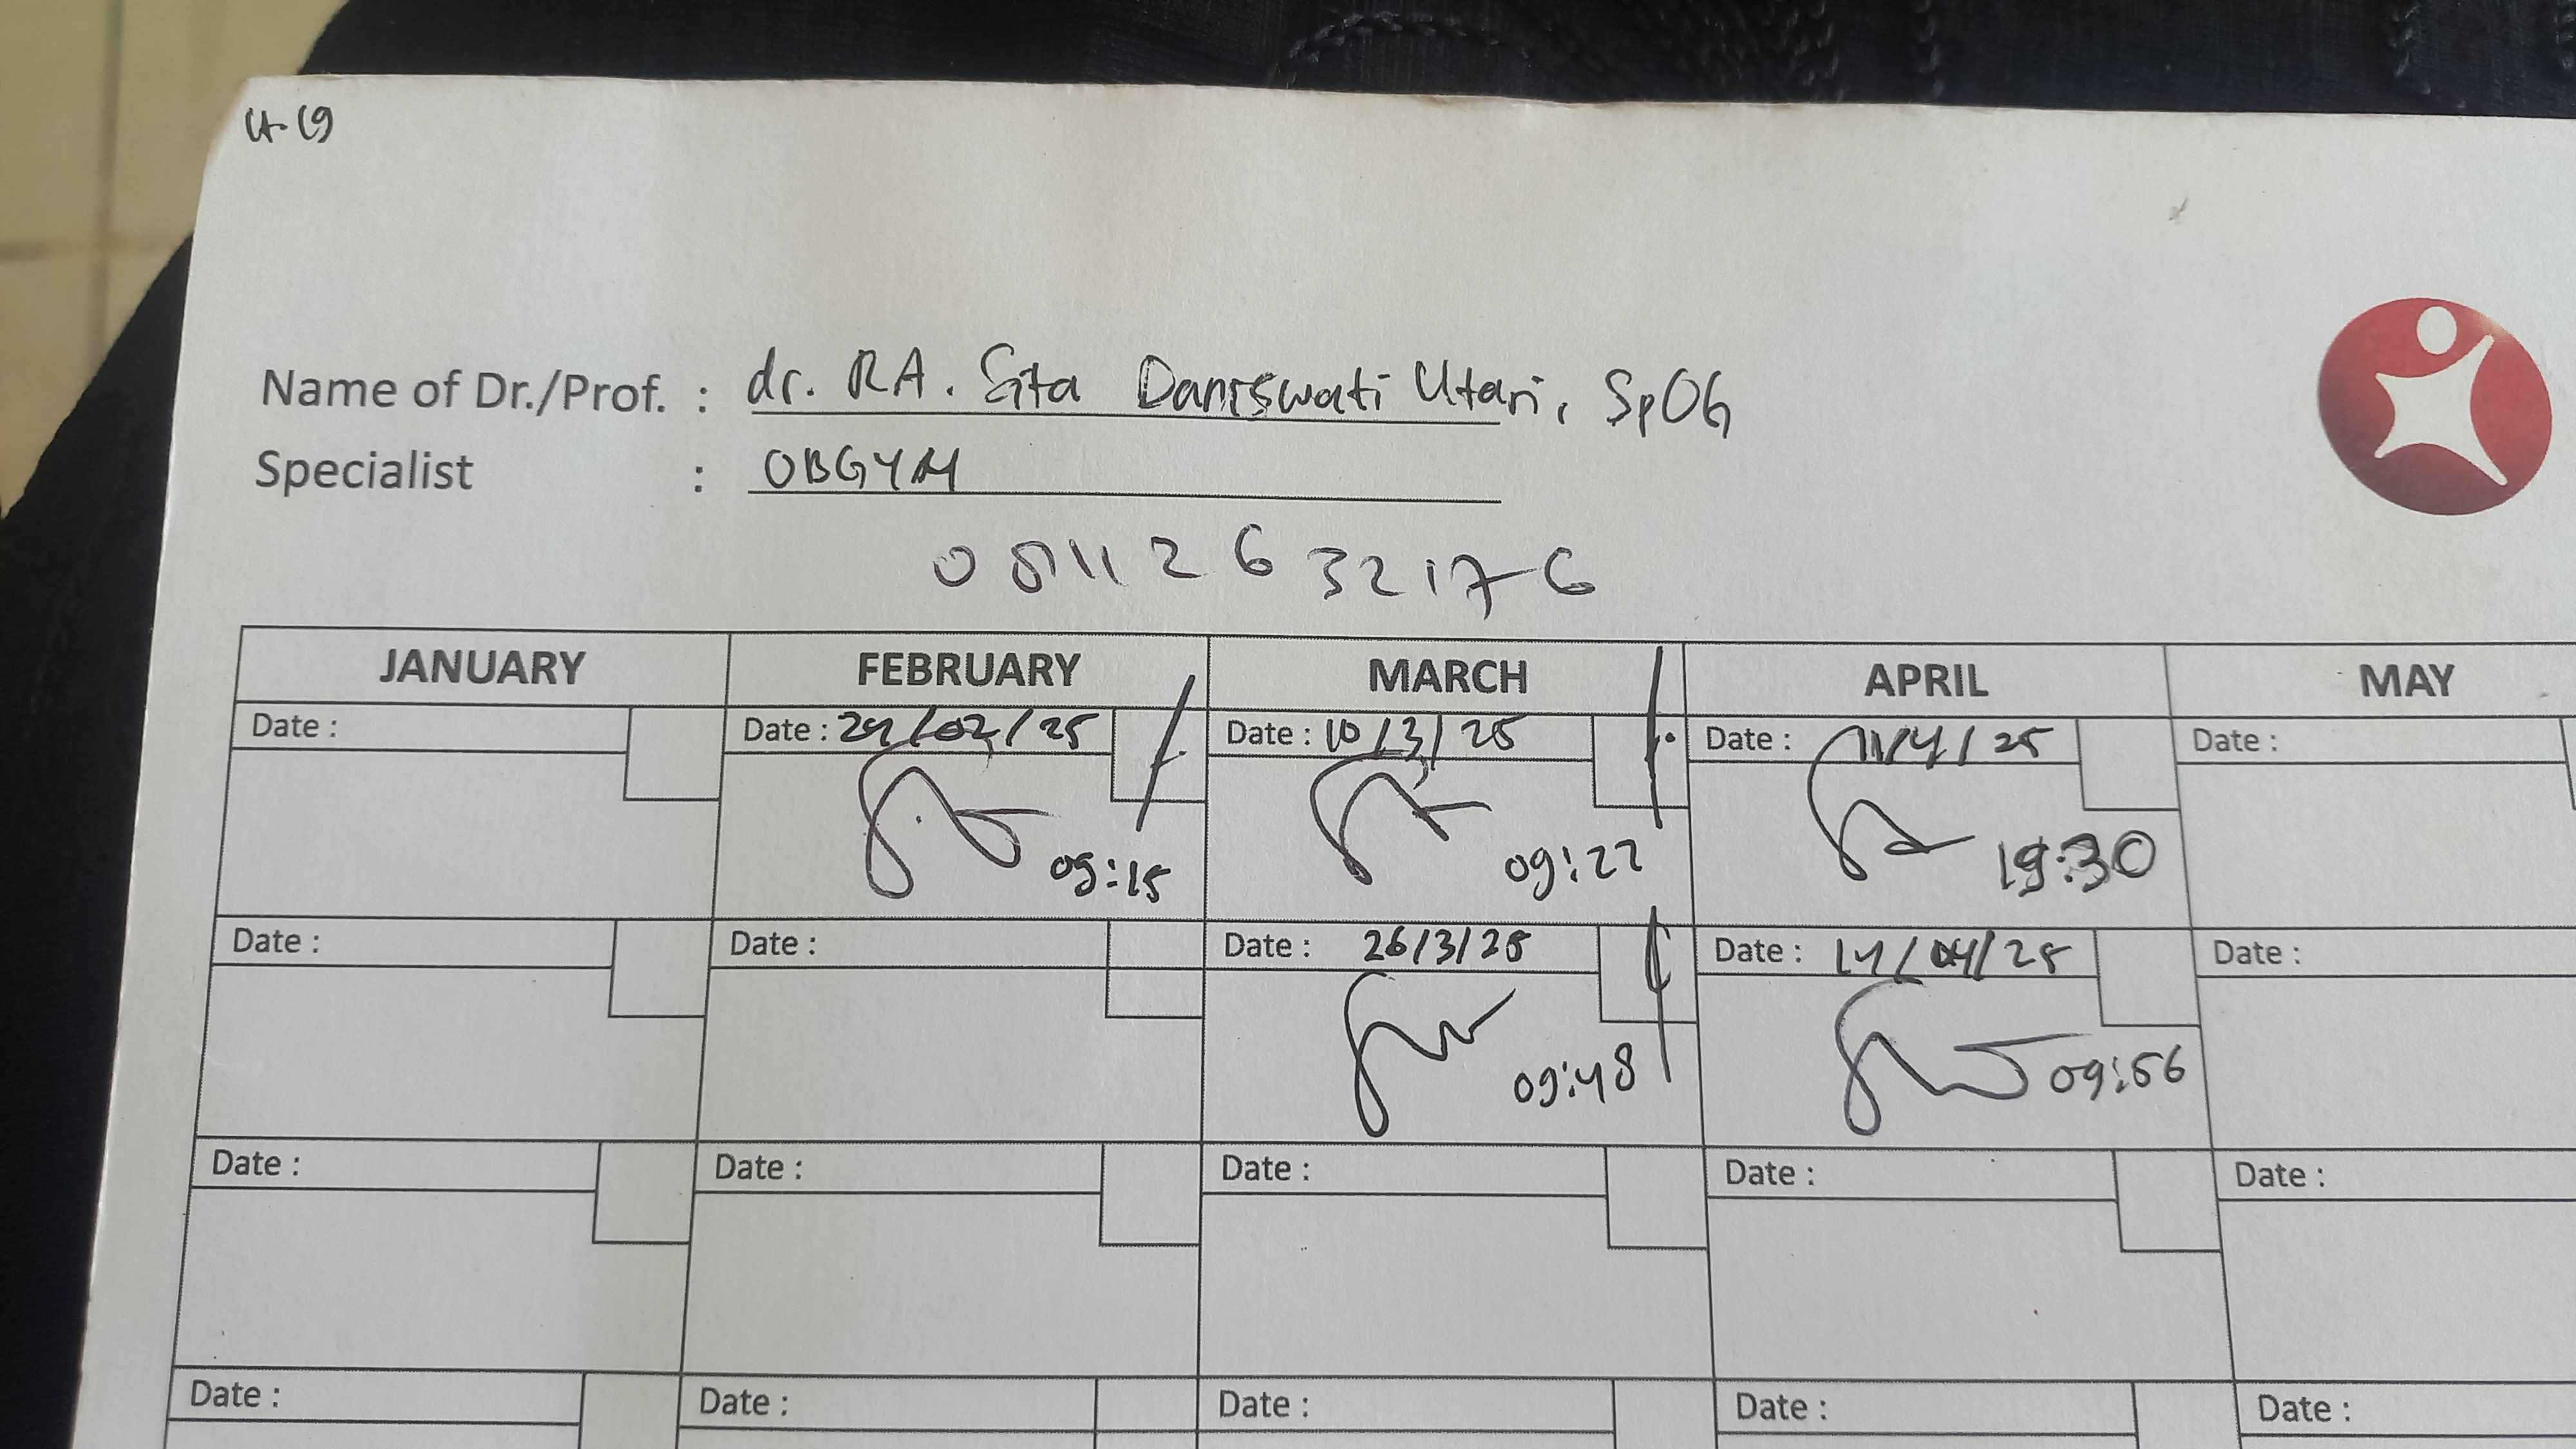 Name of Dr./Prof. : dr. RA. Sita Daniswati Utari, SpOG
Specialist : OBGYN
08112632176
JANUARY FEBRUARY MARCH APRIL MAY
Date : Date : 24/02/25 Date : 10/3/25 Date : 11/4/25 Date :
09:15 09:22 19:30
Date : Date : Date : 26/3/25 Date : 14/04/25 Date :
09:48 09:56
Date : Date : Date : Date : Date :
Date : Date : Date : Date : Date :